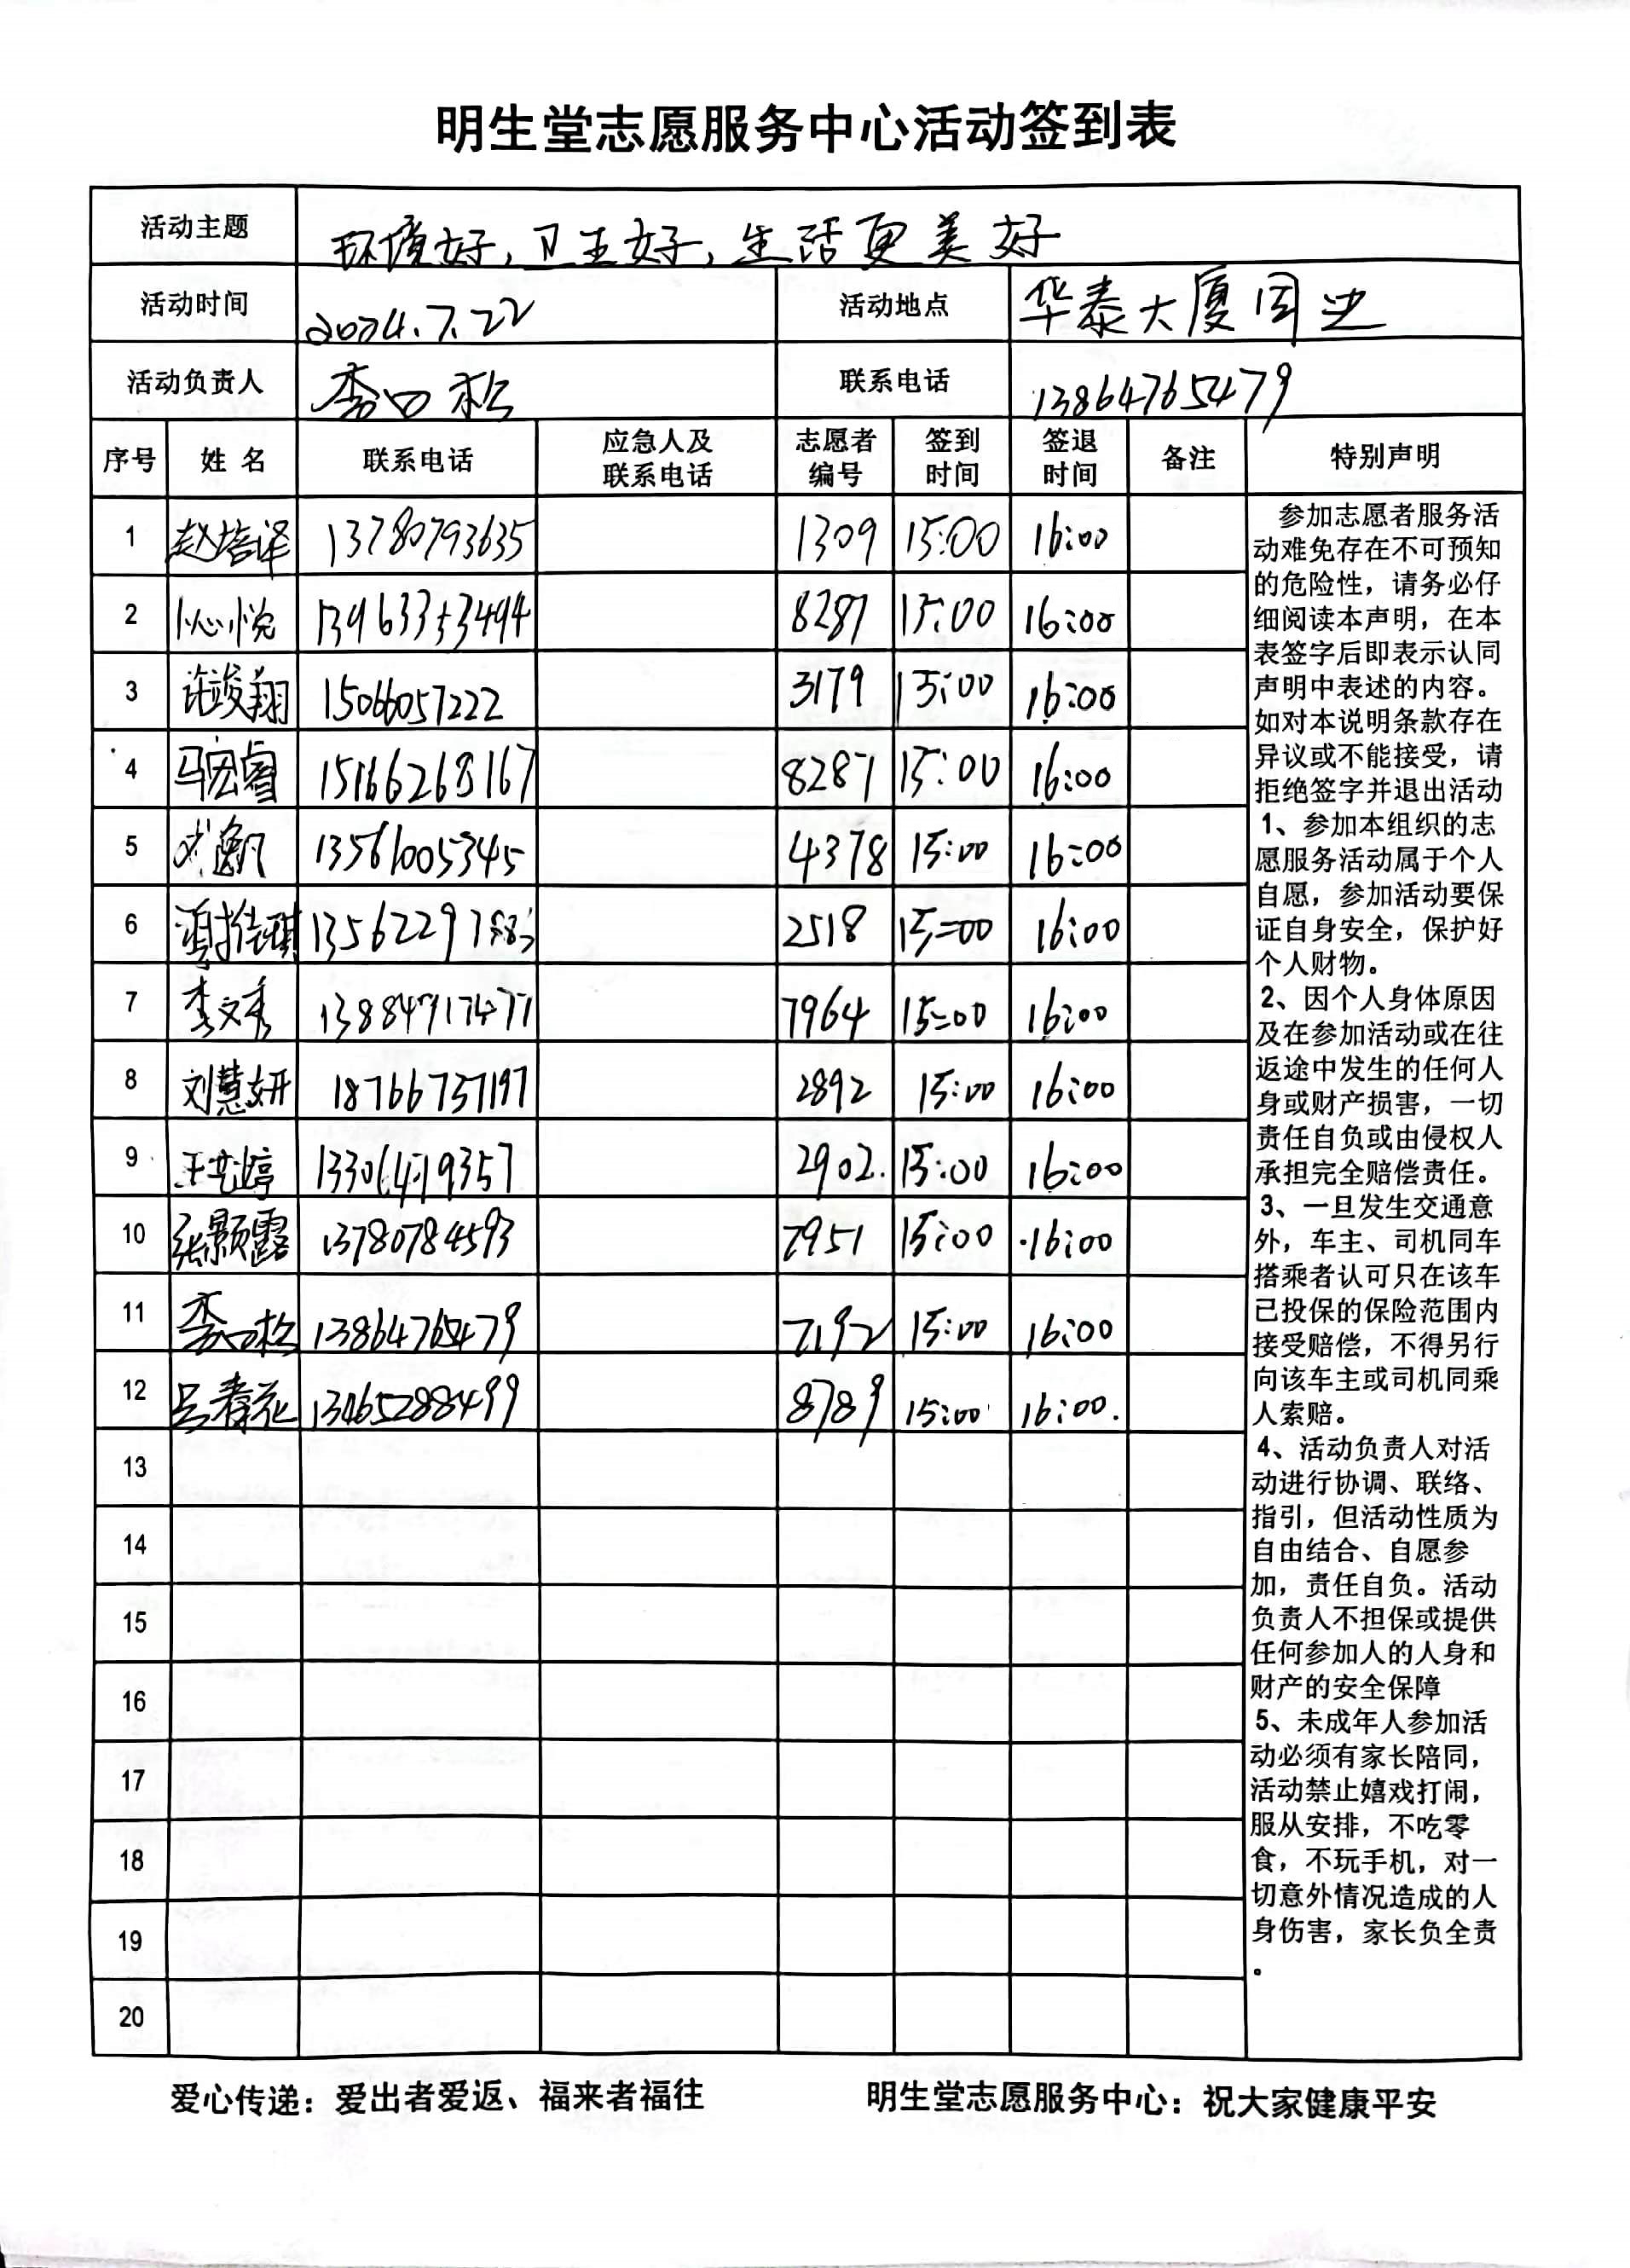 明生堂志愿服务中心活动签到表
活动主题 环境好，卫生好，生活更美好
活动时间 2024.7.22 活动地点 华泰大厦周边
活动负责人 李四松 联系电话 13864765479
序号 姓 名 联系电话 应急人及联系电话 志愿者编号 签到时间 签退时间 备注 特别声明
1 赵培译 13780793635 1309 15:00 16:00
2 8287 15:00 16:00
3 许竣翔 15066057222 3179 15:00 16:00
4 马宏睿 15166268167 8287 15:00 16:00
5 13561005345 4378 15:00 16:00
6 2518 15:00 16:00
7 李文秀 7964 15:00 16:00
8 刘慧妍 18766737197 2892 15:00 16:00
9 2902. 15:00 16:00
10 张颢露 13780784593 7951 15:00 16:00
11 李四松 13864765479 7192 15:00 16:00
12 吕春花 13465288499 8789 15:00 16:00.
13
14
15
16
17
18
19
20
参加志愿者服务活
动难免存在不可预知
的危险性，请务必仔
细阅读本声明，在本
表签字后即表示认同
声明中表述的内容。
如对本说明条款存在
异议或不能接受，请
拒绝签字并退出活动
1、参加本组织的志
愿服务活动属于个人
自愿，参加活动要保
证自身安全，保护好
个人财物。
2、因个人身体原因
及在参加活动或在往
返途中发生的任何人
身或财产损害，一切
责任自负或由侵权人
承担完全赔偿责任。
3、一旦发生交通意
外，车主、司机同车
搭乘者认可只在该车
已投保的保险范围内
接受赔偿，不得另行
向该车主或司机同乘
人索赔。
4、活动负责人对活
动进行协调、联络、
指引，但活动性质为
自由结合、自愿参
加，责任自负。活动
负责人不担保或提供
任何参加人的人身和
财产的安全保障
5、未成年人参加活
动必须有家长陪同，
活动禁止嬉戏打闹，
服从安排，不吃零
食，不玩手机，对一
切意外情况造成的人
身伤害，家长负全责
。
爱心传递：爱出者爱返、福来者福往 明生堂志愿服务中心：祝大家健康平安